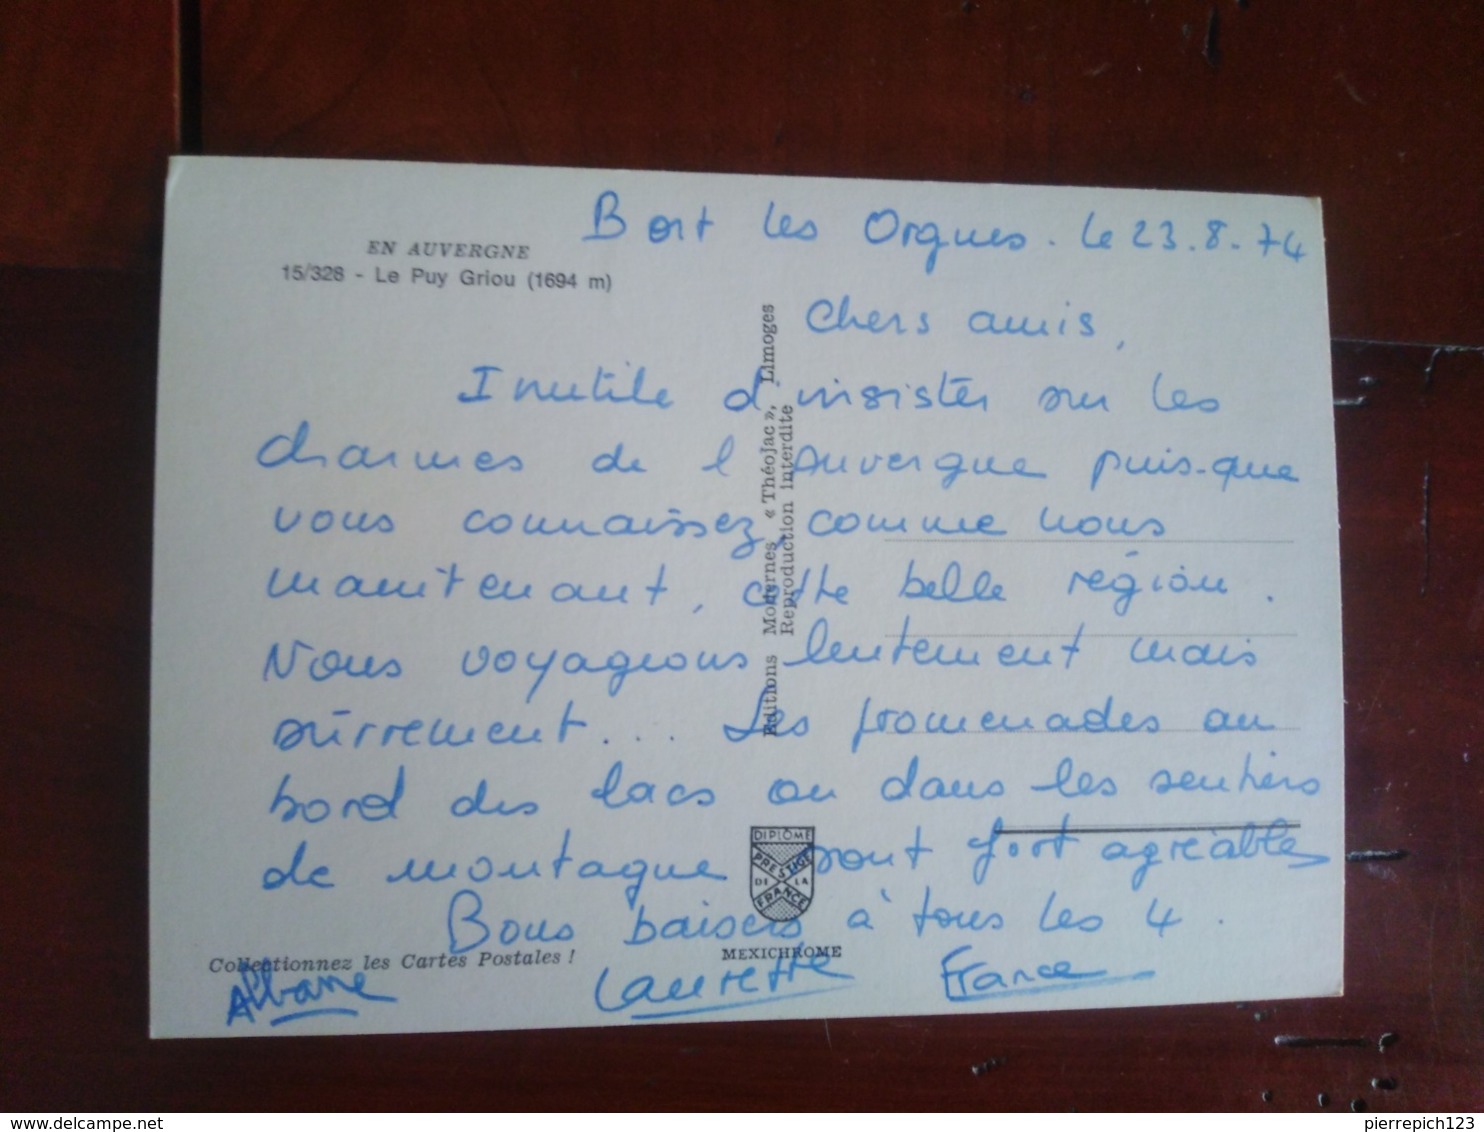 EN AUVERGNE
15/328 - Le Puy Griou (1694 m)
Bort les Orgues. le 23.8.74
Chers amis,
Inutile d'insister sur les
charmes de l'Auvergne puis-que
vous connaissez, comme nous
maintenant, cette belle région.
Nous voyageons lentement mais
sûrrement... Les promenades au
bord des lacs ou dans les sentiers
de montagne sont fort agréables
Bons baisers à tous les 4.
Albane Laurette France
Editions Modernes « Théojac », Limoges
Reproduction interdite
DIPLÔME
PRESTIGE
DE LA
FRANCE
MEXICHROME
Collectionnez les Cartes Postales !
pierrepich123